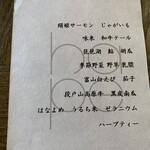 瑞穂サーモン じゃがいも
味来 和牛テール
琵琶湖 鮎 胡瓜
季節野菜 野草 乳酸
富山白えび 茄子
段戸山高原牛 黒皮南瓜
はなよめ うるち米 ゼラニウム
ハーブティー